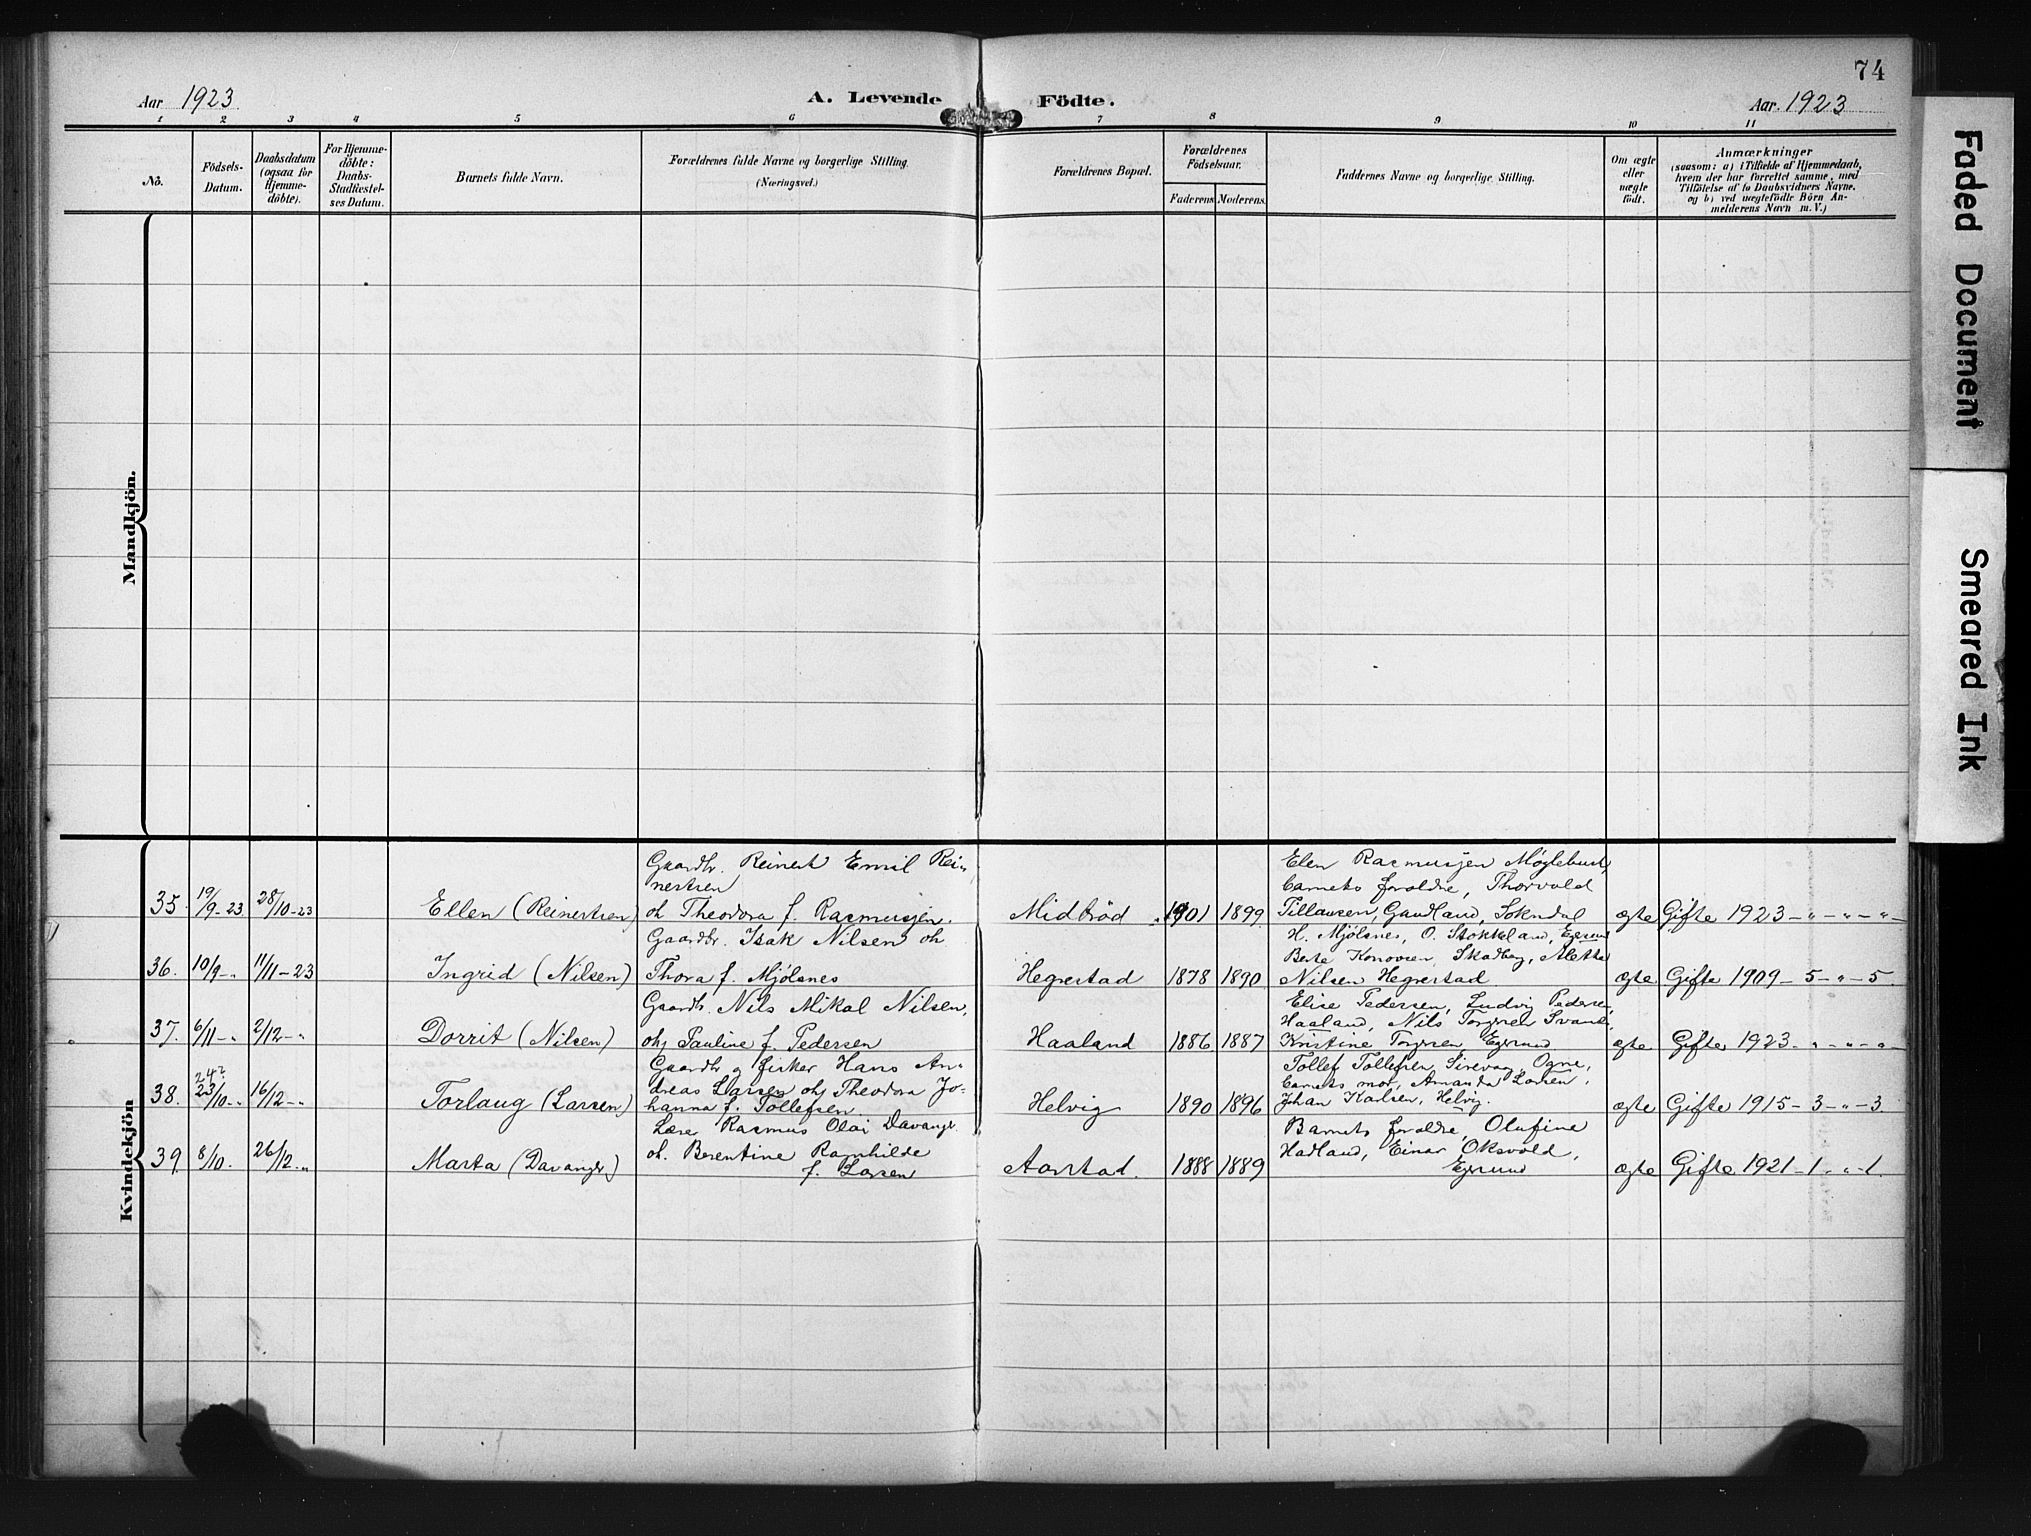 74
Aar 1923
A. Levende Födte.
Aar. 1923
1 2 3 4 5 6 7 8 9 10 11
No.
Födsels-Datum.
Daabsdatum (ogsaa for Hjemme-döbte).
For Hjemme-döbte: Daabs-Stadfæstel-ses Datum.
Barnets fulde Navn.
Forældrenes fulde Navne og borgerlige Stilling.
(Næringsvei.)
Forældrenes Bopæl.
Forældrenes Födselsaar.
Faderens. Moderens.
Faddernes Navne og borgerlige Stilling.
Om ægte eller uægte födt.
Anmærkninger
(saasom: a) i Tilfælde af Hjemmedaab,
hvem der har forrettet samme, med
Tilföielse af to Daabsvidners Navne.
og b) ved uægtefödte Börn An-
melderens Navn m. V.)
Mandkjön.
Kvindekjön
35 19/9-23 28/10-23 Ellen (Reinertsen)
Gaardbr. Reinert Emil Rei-
nertsen
oh Theodora f. Rasmussen.
Midbröd 1901 1899
Elen Rasmussen Møglebust,
barnets foraldre, Thorvald
Tillausen, Gaudland, Sokndal
ægte Gifte 1923 - " - " - " -
36. 10/9-" 11/11-23 Ingrid (Nilsen)
Gaardbr. Isak Nilsen oh
Thora f. Mjölsnes
Hegrestad 1878 1890
H. Mjölsnes, O. Stokkeland, Egersund
Berte Konovsen, Skadberg, Aletta
Nilsen Hegrestad
ægte Gifte 1909 - 5 - " - 5.
37. 6/11-" 2/12-" Dorrit (Nilsen)
Gaardbr. Nils Mikal Nilsen,
oh Pauline f. Pedersen
Haaland 1886 1887
Elise Pedersen, Ludvig Pedersen,
Haaland, Nils Torgersen Svanes,
Kristine Torgersen Egersund
ægte Gifte 1923 - " - " - " -
38. 24? 23/10-" 16/12-" Torlaug (Larsen)
Gaardbr og fisker Hans An-
dreas Larsen oh Theodora Jo-
hanna f. Tollefsen.
Helvig 1890 1896
Tollef Tollefsen Sirevaag, Ogne,
barnets mor, Amanda Larsen,
Johan Karlsen, Helvig.
ægte Gifte 1915 - 3 - " - 3
39. 8/10. 26/12-" Marta (Davanger)
Lærer Rasmus Olai Davanger
oh. Berentine Ragnhilde
f. Larsen
Aarstad. 1888 1889
Barnets foraldre, Olufine
Hadland, Einar Oksvold,
Egersund
ægte Gifte 1921 - 1 - " - 1.
Faded Document
Smeared Ink